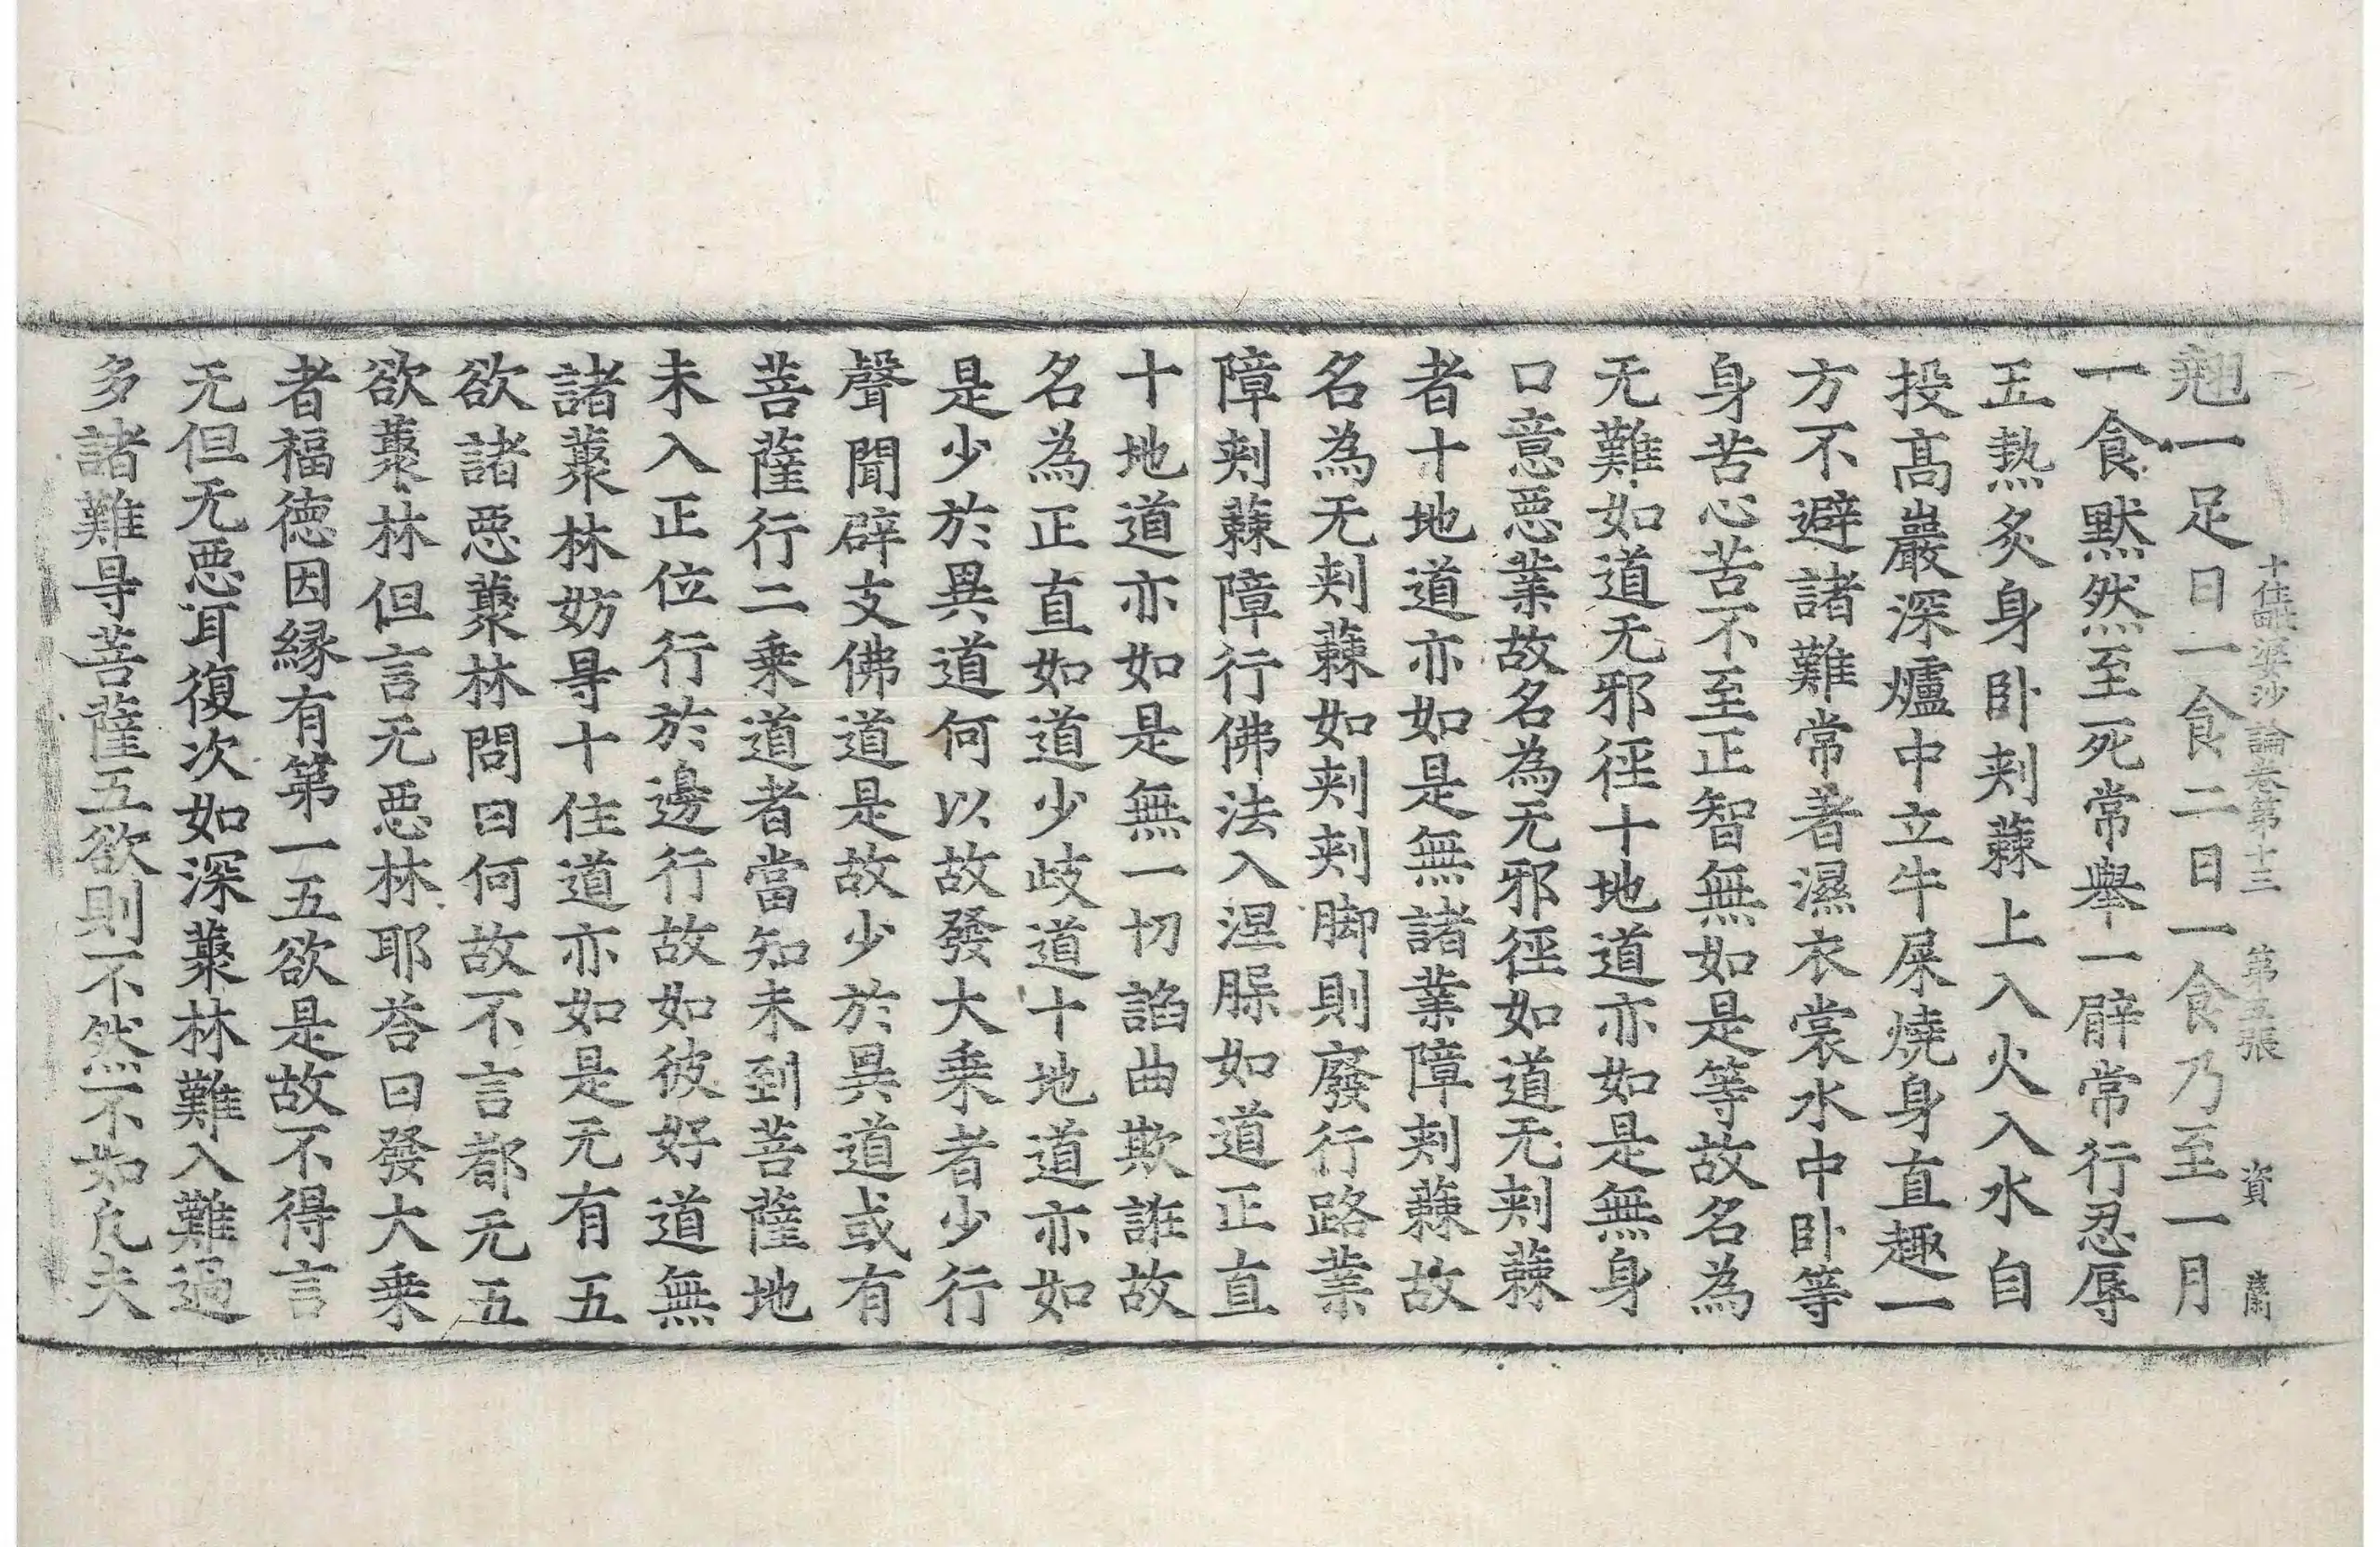 十住毗婆沙論卷第十三　第五張　資
翹一足日一食二日一食乃至一月
一食默然至死常舉一䏶常行忍辱
五熱炙身卧刾蕀上入火入水自
投高巖深爐中立牛屎燒身直趣一
方不避諸難常者濕衣裳水中卧等
身苦心苦不至正智無如是等故名為
无難如道无邪徑十地道亦如是無身
口意惡業故名為无邪徑如道无刾蕀
者十地道亦如是無諸業障刾蕀故
名為无刾蕀如刾刾脚則廢行路業
障刾蕀障行佛法入涅槃如道正直
十地道亦如是無一切謟曲欺誑故
名為正直如道少歧道十地道亦如
是少於異道何以故發大乗者少行
聲聞辟支佛道是故少於異道或有
菩薩行二乗道者當知未到菩薩地
未入正位行於邊行故如彼好道無
諸藂林妨㝵十住道亦如是无有五
欲諸惡藂林問曰何故不言都无五
欲藂林但言无惡林耶荅曰發大乗
者福德因緣有第一五欲是故不得言
无但无惡耳復次如深藂林難入難過
多諸難㝵菩薩五欲則不然不如凡夫